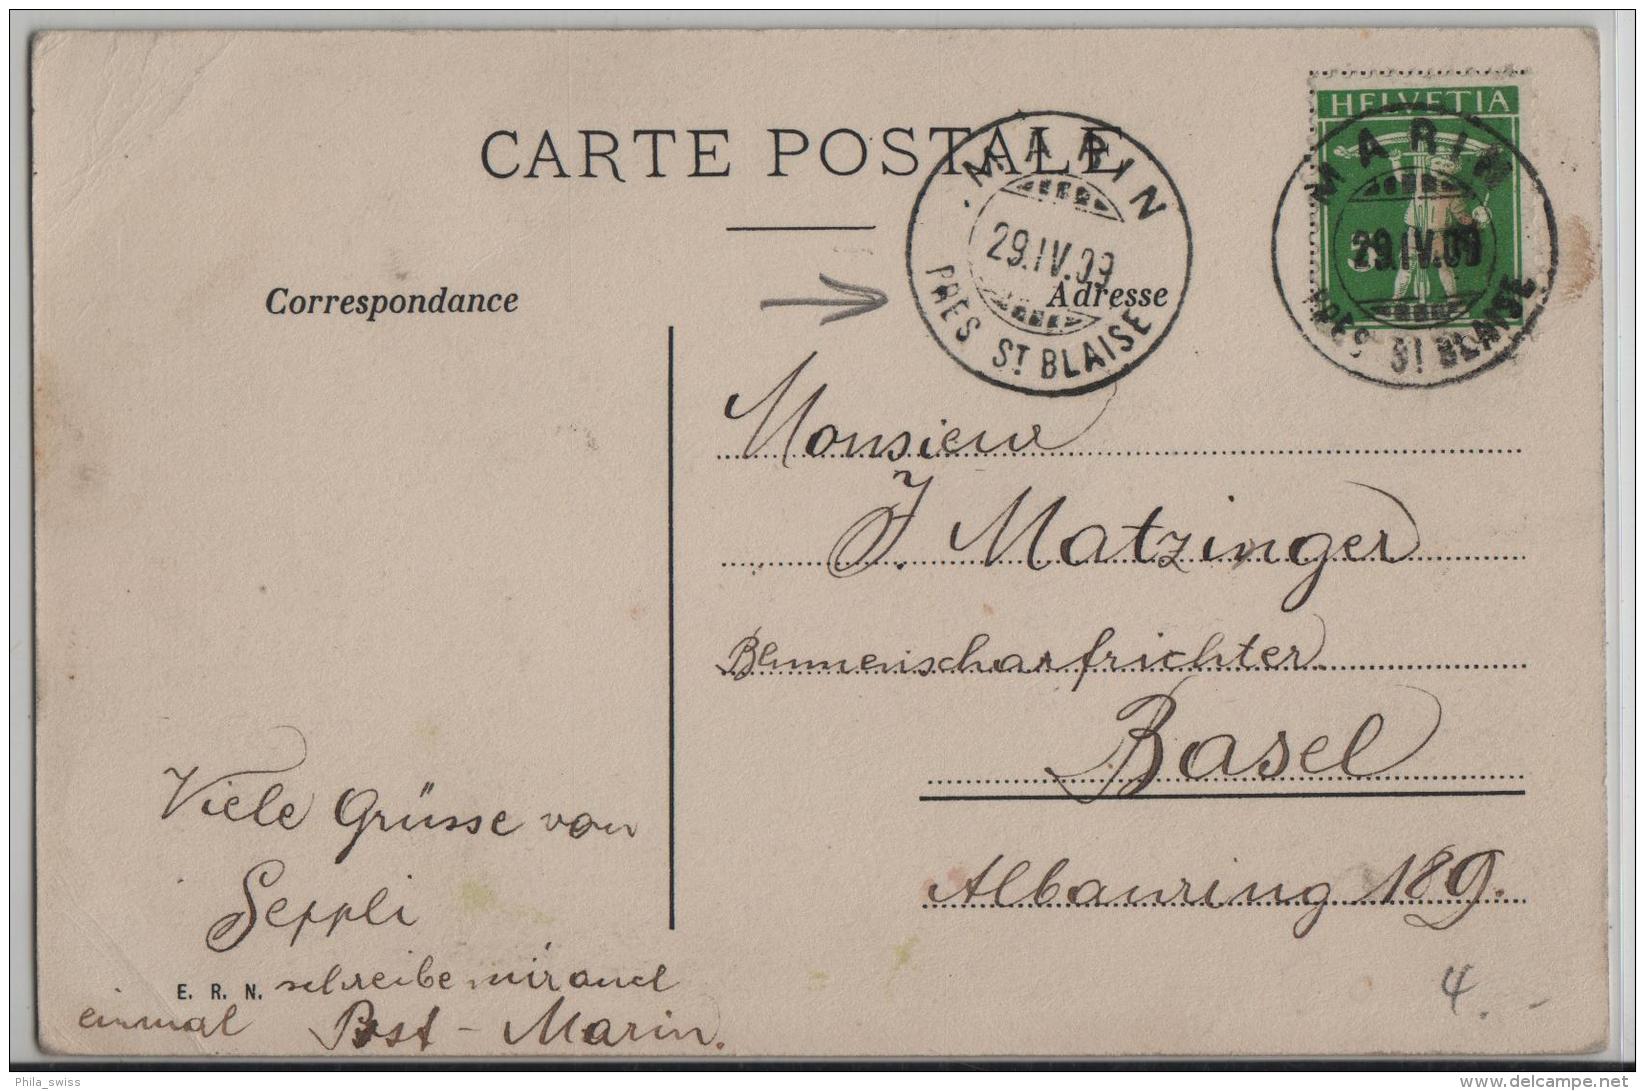 CARTE POSTALE
HELVETIA
MARIN
29.IV.09
PRÈS ST BLAISE
MARIN
29.IV.09
PRÈS ST BLAISE
Correspondance
Adresse
Monsieur
J. Matzinger
Blumenscharfrichter
Basel
Albanring 189.
Viele Grüsse von
Seppli
E. R. N. schreibe mir auch
einmal Post-Marin.
4.-
Phila_swiss
delcampe.net